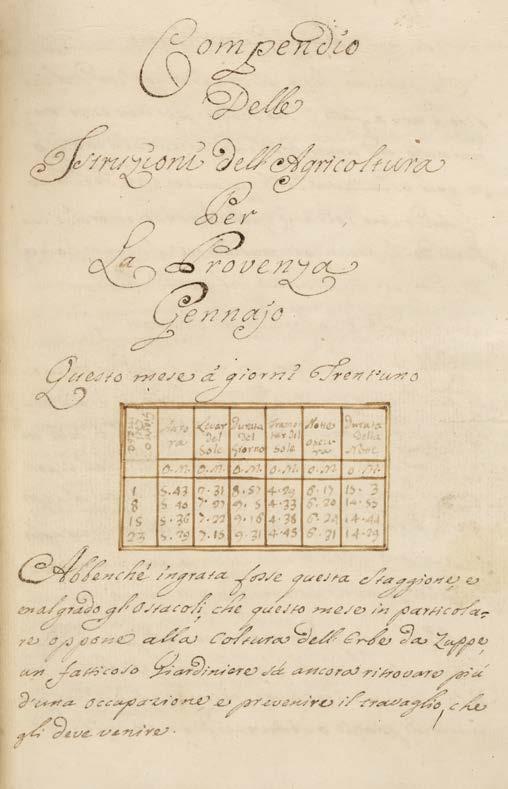 Compendio
Delle
Istruzioni dell'Agricoltura
Per
La Provenza
Gennajo
Questo mese à giorni Trent'uno
Auro Levar Durata Tramon Notte Durata
ra del del tar del oscu della
Sole Giorno Sole ra Notte
O. M. O. M. O. M. O. M. O. M. O. M.
1 5.43 7.31 8.57 4.29 6.17 15.3
8 5.40 7.27 9.5 4.33 6.20 14.55
15 5.36 7.22 9.16 4.38 6.24 14.44
23 5.29 7.15 9.31 4.45 6.31 14.29
Abbenché ingrata fosse questa Staggione, e
malgrado gl'Ostacoli, che questo mese in particola-
re oppone alla Coltura dell'Erbe da Zuppe,
un fatticoso Giardiniere sà ancora ritrovare più
d'una occupazione e prevenire il travaglio, che
gli deve venire.